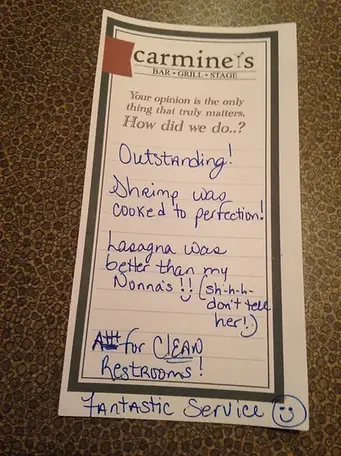 carmine's
BAR • GRILL • STAGE
Your opinion is the only
thing that truly matters,
How did we do..?
Outstanding!
Shrimp was
cooked to perfection!
Lasagna was
better than my
Nonna's !! (sh-h-h-
don't tell
her!)
A+++ for CLEAN
Restrooms!
Fantastic Service